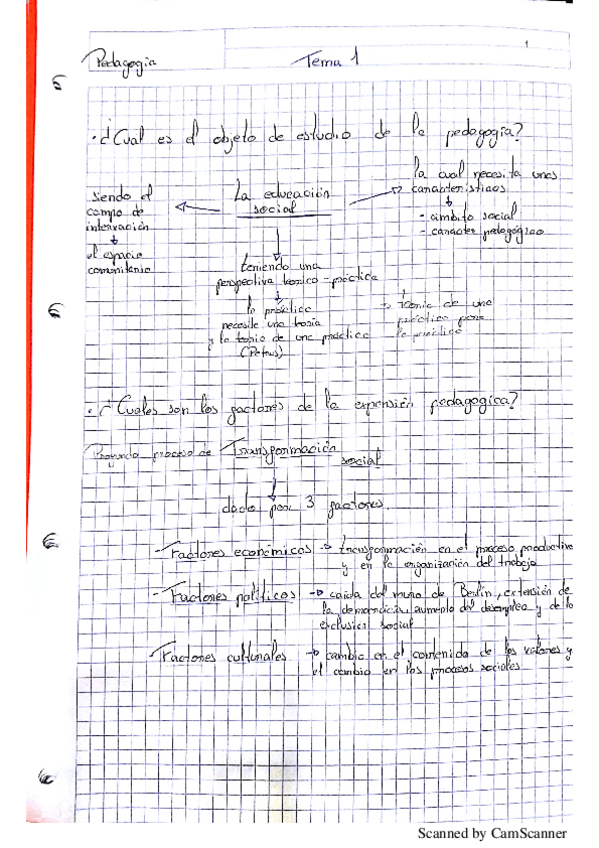 1
Pedagogía
Tema 1
· ¿Cual es el objeto de estudio de la pedagogía?
La educación
social
siendo el
campo de
intervención
el espacio
comunitario
la cual necesita unas
características
- ámbito social
- caracter pedagógico
teniendo una
perspectiva teórico - práctica
la práctica
necesite una teoría
y la teoría de una práctica
(Petrus)
→ teoría de una
práctica para
la práctica
· ¿Cuales son los factores de la expansión pedagogica?
Profundo proceso de Transformación
social
dado por 3 factores.
- Factores económicos → transformación en el proceso productivo
y en la organización del trabajo
- Factores políticos → caida del muro de Berlín, extensión de
la democracia, aumento del desempleo y de la
exclusión social
Factores culturales → cambio en el contenido de los valores y
el cambio en los procesos sociales
Scanned by CamScanner